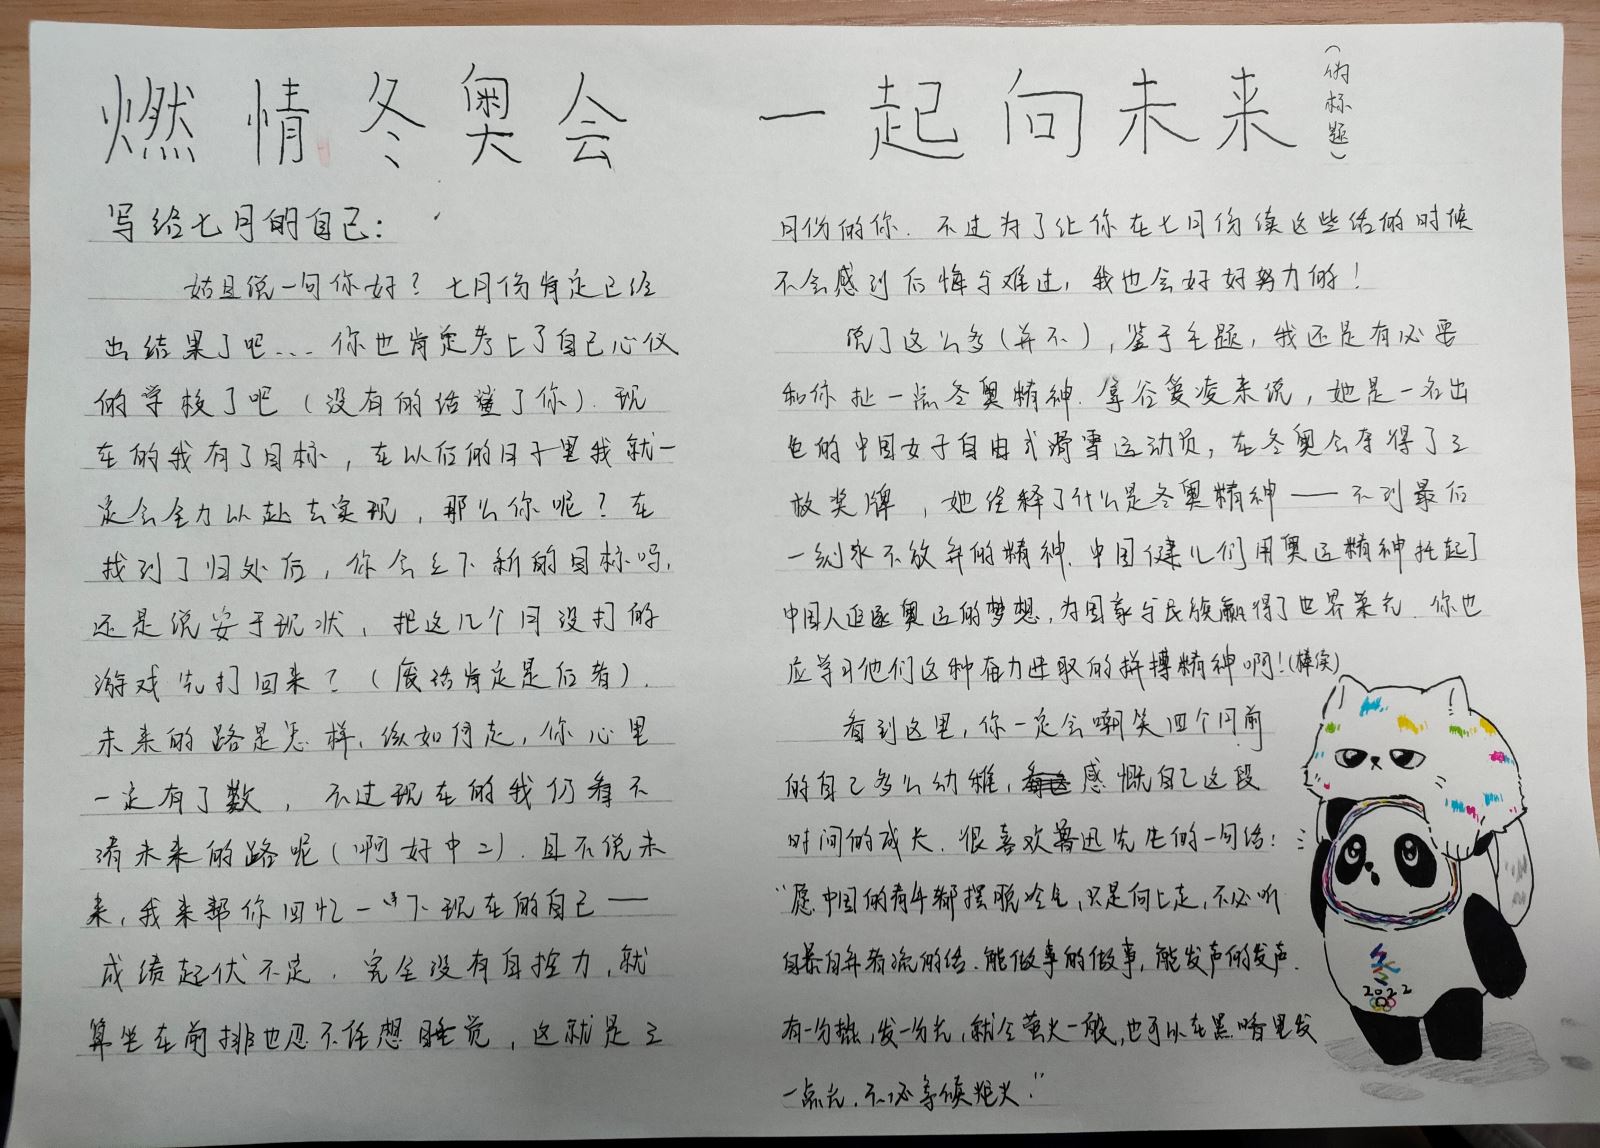 燃情冬奥会 一起向未来
(伪标题)
写给七月的自己:
姑且说一句你好?七月份肯定已经
出结果了吧... 你也肯定考上了自己心仪
的学校了吧(没有的话鲨了你).现
在的我有了目标,在以后的日子里我就一
定会全力以赴去实现,那么你呢?在
找到了归处后,你会立下新的目标吗,
还是说安于现状,把这几个月没打的
游戏先打回来?(废话肯定是后者).
未来的路是怎样,该如何走,你心里
一定有了数,不过现在的我仍看不
清未来的路呢(啊好中二).且不说未
来,我来帮你回忆一下现在的自己——
成绩起伏不定.完全没有自控力,就
算坐在前排也忍不住想睡觉,这就是三
月份的你.不过为了让你在七月份读这些话的时候
不会感到后悔与难过,我也会好好努力的!
说了这么多(并不),鉴于主题,我还是有必要
和你扯一点冬奥精神.拿谷爱凌来说,她是一名出
色的中国女子自由式滑雪运动员,在冬奥会夺得了三
枚奖牌,她诠释了什么是冬奥精神——不到最后
一刻永不放弃的精神.中国健儿们用奥运精神托起了
中国人追逐奥运的梦想,为国家与民族赢得了世界荣光.你也
应学习他们这种奋力进取的拼搏精神啊!(棒读)
看到这里,你一定会嘲笑四个月前
的自己多么幼稚,感慨自己这段
时间的成长.很喜欢鲁迅先生的一句话:
"愿中国的青年都摆脱冷气,只是向上走,不必听
自暴自弃者流的话.能做事的做事,能发声的发声.
有一分热,发一分光,就令萤火一般,也可以在黑暗里发
一点光.不必等候炬火."
冬
2022